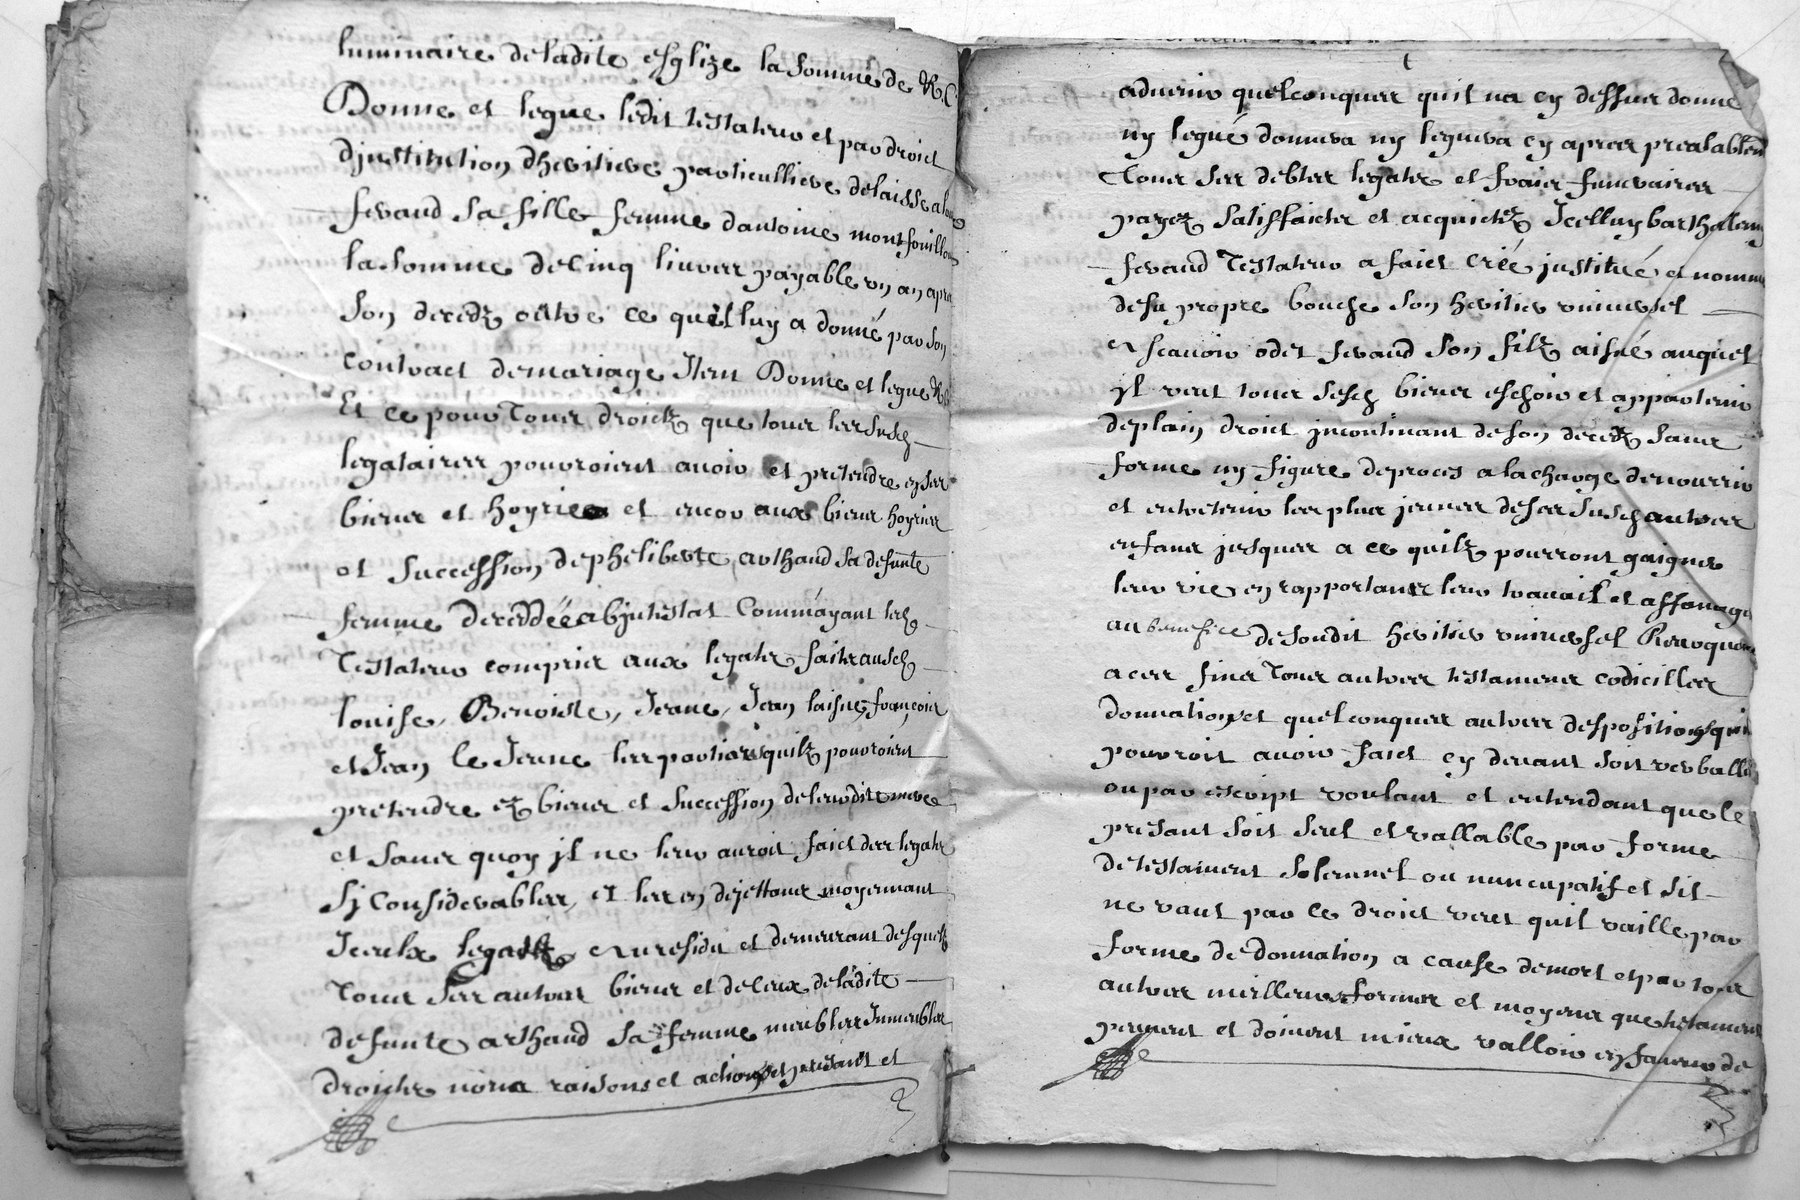 luminaire deladite esglize la somme de
Donne et legue ledit testateur et par droict
djnstitution dheritiere particulliere delaisse a
ferand sa fille femme dantoine montfouillou
la somme de cinq liures payable vn an apres
son decedz oultre ce quil luy a donné par son
contract demariage Item Donne et legue
Et ce pour tous droictz que tous les susd
legataires pourroient auoir et pretendre en ses
biens et hoyries et encor aux biens hoyries
et succession de pheliberte arthaud sa defunte
femme decedée abjntestat Comm ayant led
testateur compris aux legatz faitz ausd
louise, Benoiste, Jeane, Jean laisne, francois
et Jean le Jeune les partiesquilz pourroient
pretendre ez biens et succession deleurdite mere
et sans quoy jl ne leur auroit faict des legatz
sj considerables, et les en dejettant moyennant
Jceulx legatz et au residu et demeurant desquelz
tous ses autres biens et de ceux deladite
defunte arthaud sa femme meubles Jmeubles
droictz noms raisons et actions et presant et
aduenir quelconques quil na cy dessus donné
ny legué donnera ny leguera cy apres prealablemt
tous ses debtes legatz et fraicz funeraires
payez satisfaictz et acquictez Jcelluy barthelemy
ferand testateur a faict créé jnstitué et nommé
desa propre bouche son heritier uniuersel
et scauoir odet ferand son filz aisné auquel
jl veut tous sesd biens eschoir et appartenir
deplain droict jncontinant deson decedz sans
forme ny figure deproces alacharge denourrir
et entretenir les plus jeunes deses susd autres
enfans jusques a ce quilz pourront gaigner
leur vie en rapportant leur trauail et affanage
au benefice desondit heritier uniuersel Reuoquant
aces fins tous autres testamens codicilles
donnations et quelconques autres despositions quil
pourroit auoir faict cy deuant soit verballe
oupar escript voulant et entendant quele
presant soit seul et vallable par forme
detestament solemnel ou nuncupatif et sil
ne vaut par ce droict veut quil vaille par
forme dedonnation a cause demort et par tous
autres meilleures formes et moyens que testament
peuuent et doiuent mieux valloir en faueur de